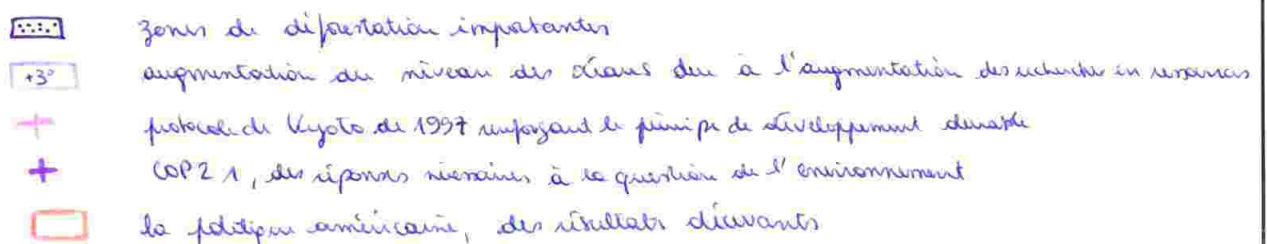 zones de déforestation importantes
+3° augmentation du niveau des océans due à l'augmentation des recherches en ressources
protocole de Kyoto de 1997 renforçant le principe de développement durable
COP21, des réponses nécessaires à la question de l'environnement
la politique américaine, des résultats décevants